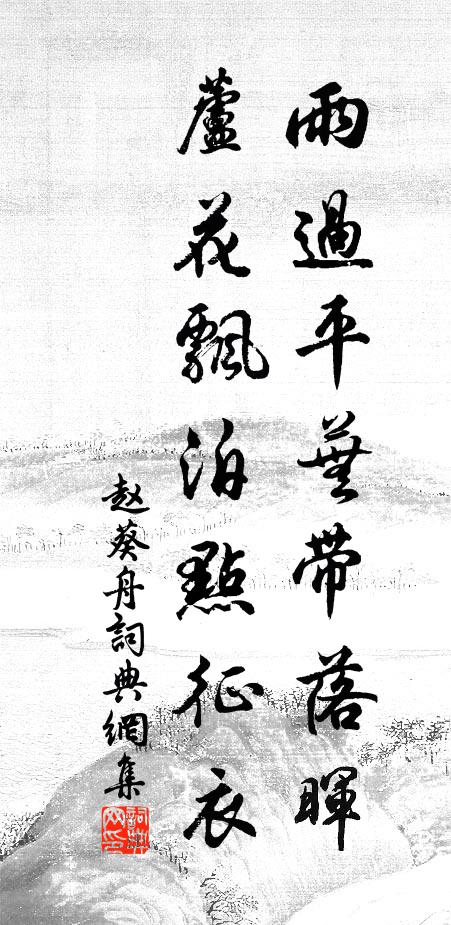 雨過平蕪帶落暉
蘆花飄泊點征衣
赵葵舟詞典網集